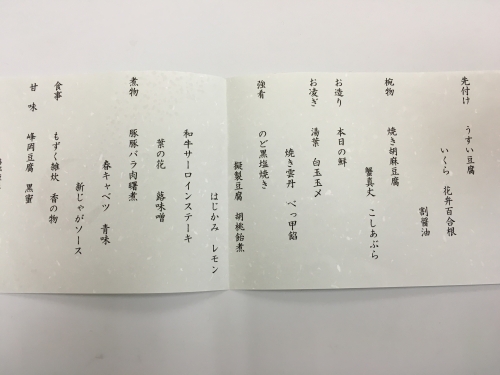 先付け うすい豆腐
いくら 花弁百合根
割醤油
椀物 焼き胡麻豆腐
蟹真丈 こしあぶら
お造り 本日の鮮
お凌ぎ 湯葉 白玉玉〆
焼き雲丹 べっ甲餡
強肴 のど黒塩焼き
擬製豆腐 胡桃飴煮
はじかみ レモン
和牛サーロインステーキ
葉の花 蕗味噌
煮物 豚豚バラ肉曙煮
春キャベツ 青味
新じゃがソース
食事 もずく雑炊 香の物
甘味 峰岡豆腐 黒蜜